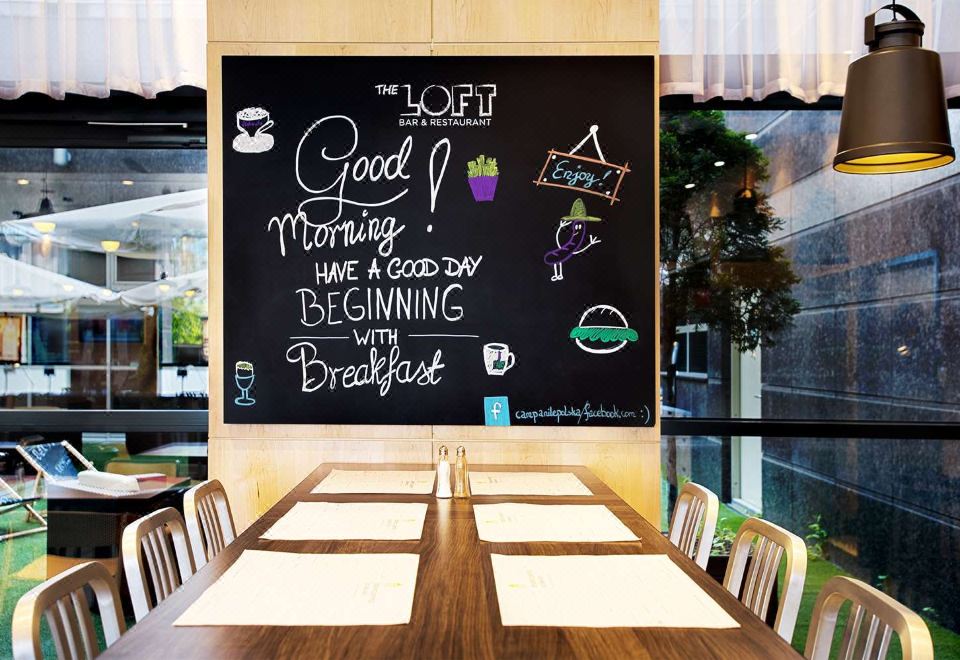 THE LOFT
BAR & RESTAURANT
Good
Morning !
HAVE A GOOD DAY
BEGINNING
WITH
Breakfast
Enjoy!
f campanilepolska/facebook.com :)